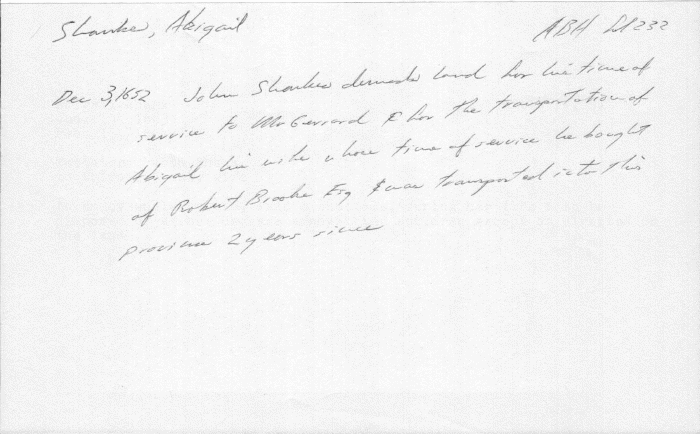 Shanks, Abigail
ABH 232
Dec 3, 1652 John Shanks demands land for his time of
service to Mr Gerrard & for the transportation of
Abigail his wife whose time of service he bought
of Robert Brooke Esq & was transported into this
province 2 years since